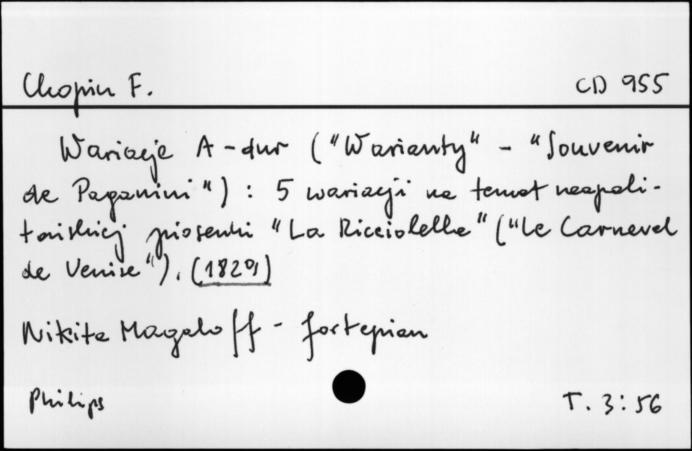 Chopin F. CD 955
Wariacje A-dur ("Warianty" - "Souvenir
de Paganini") : 5 wariacji na temat neapoli-
tańskiej piosenki "La Ricciolella" ("Le Carneval
de Venise"). (1829)
Nikita Magaloff - fortepian
Philips T. 3:56